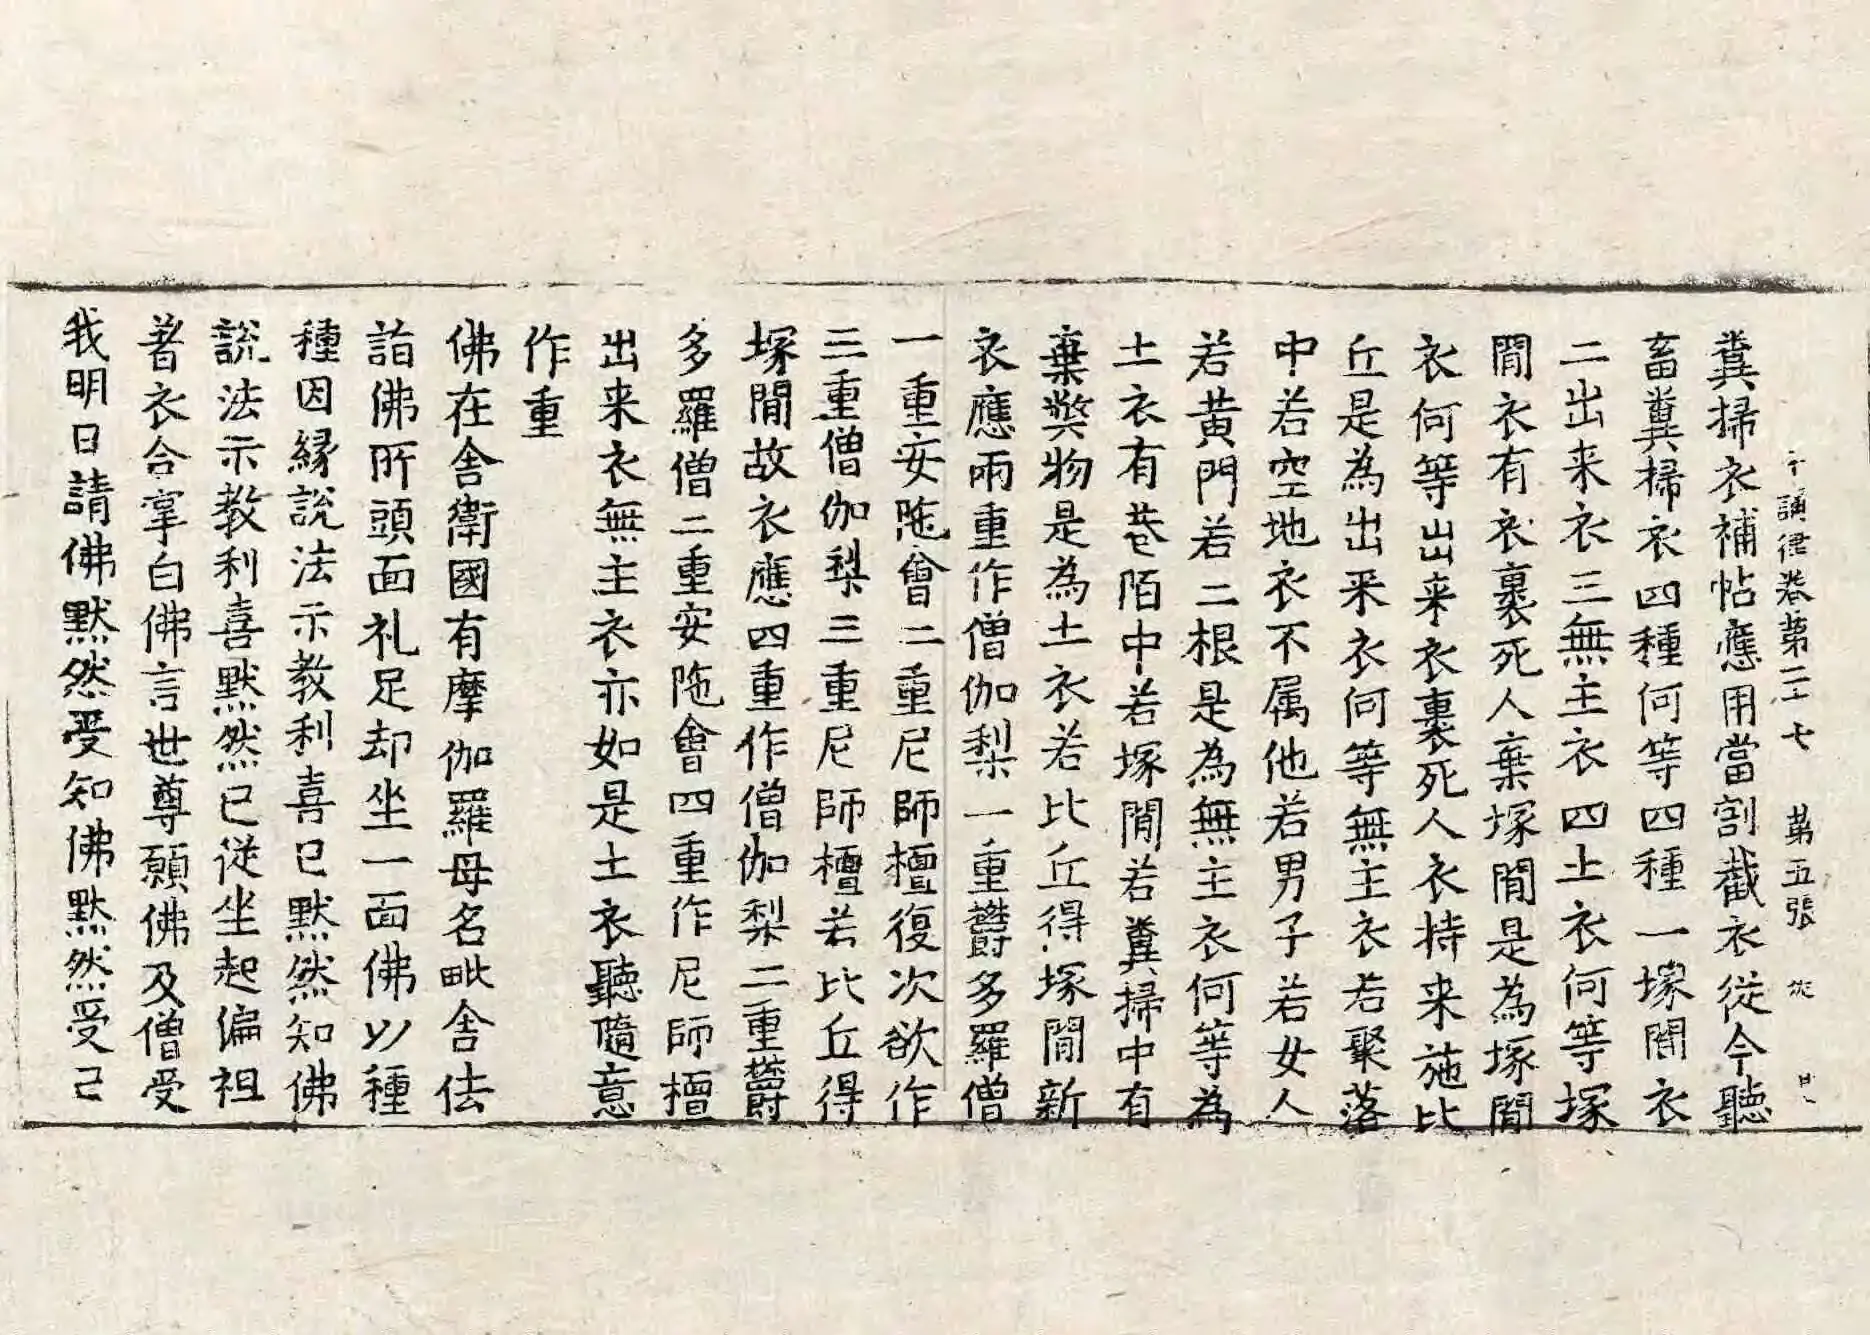 十誦律卷第二十七 第五張
糞掃衣補帖應用當割截衣從今聽
畜糞掃衣四種何等四種一塚間衣
二出来衣三無主衣四土衣何等塚
間衣有衣裹死人棄塚間是為塚間
衣何等出来衣裹死人衣持来施比
丘是為出来衣何等無主衣若聚落
中若空地衣不属他若男子若女人
若黄門若二根是為無主衣何等為
土衣有巷陌中若塚間若糞掃中有
棄弊物是為土衣若比丘得塚間新
衣應兩重作僧伽梨一重欝多羅僧
一重安陁會二重尼師檀復次欲作
三重僧伽梨三重尼師檀若比丘得
塚間故衣應四重作僧伽梨二重欝
多羅僧二重安陁會四重作尼師檀
出来衣無主衣亦如是土衣聽隨意
作重
佛在舍衛國有摩伽羅母名毗舍佉
詣佛所頭面礼足却坐一面佛以種
種因縁說法示教利喜已默然知佛
說法示教利喜默然已從坐起偏袒
著衣合掌白佛言世尊願佛及僧受
我明日請佛默然受知佛默然受已